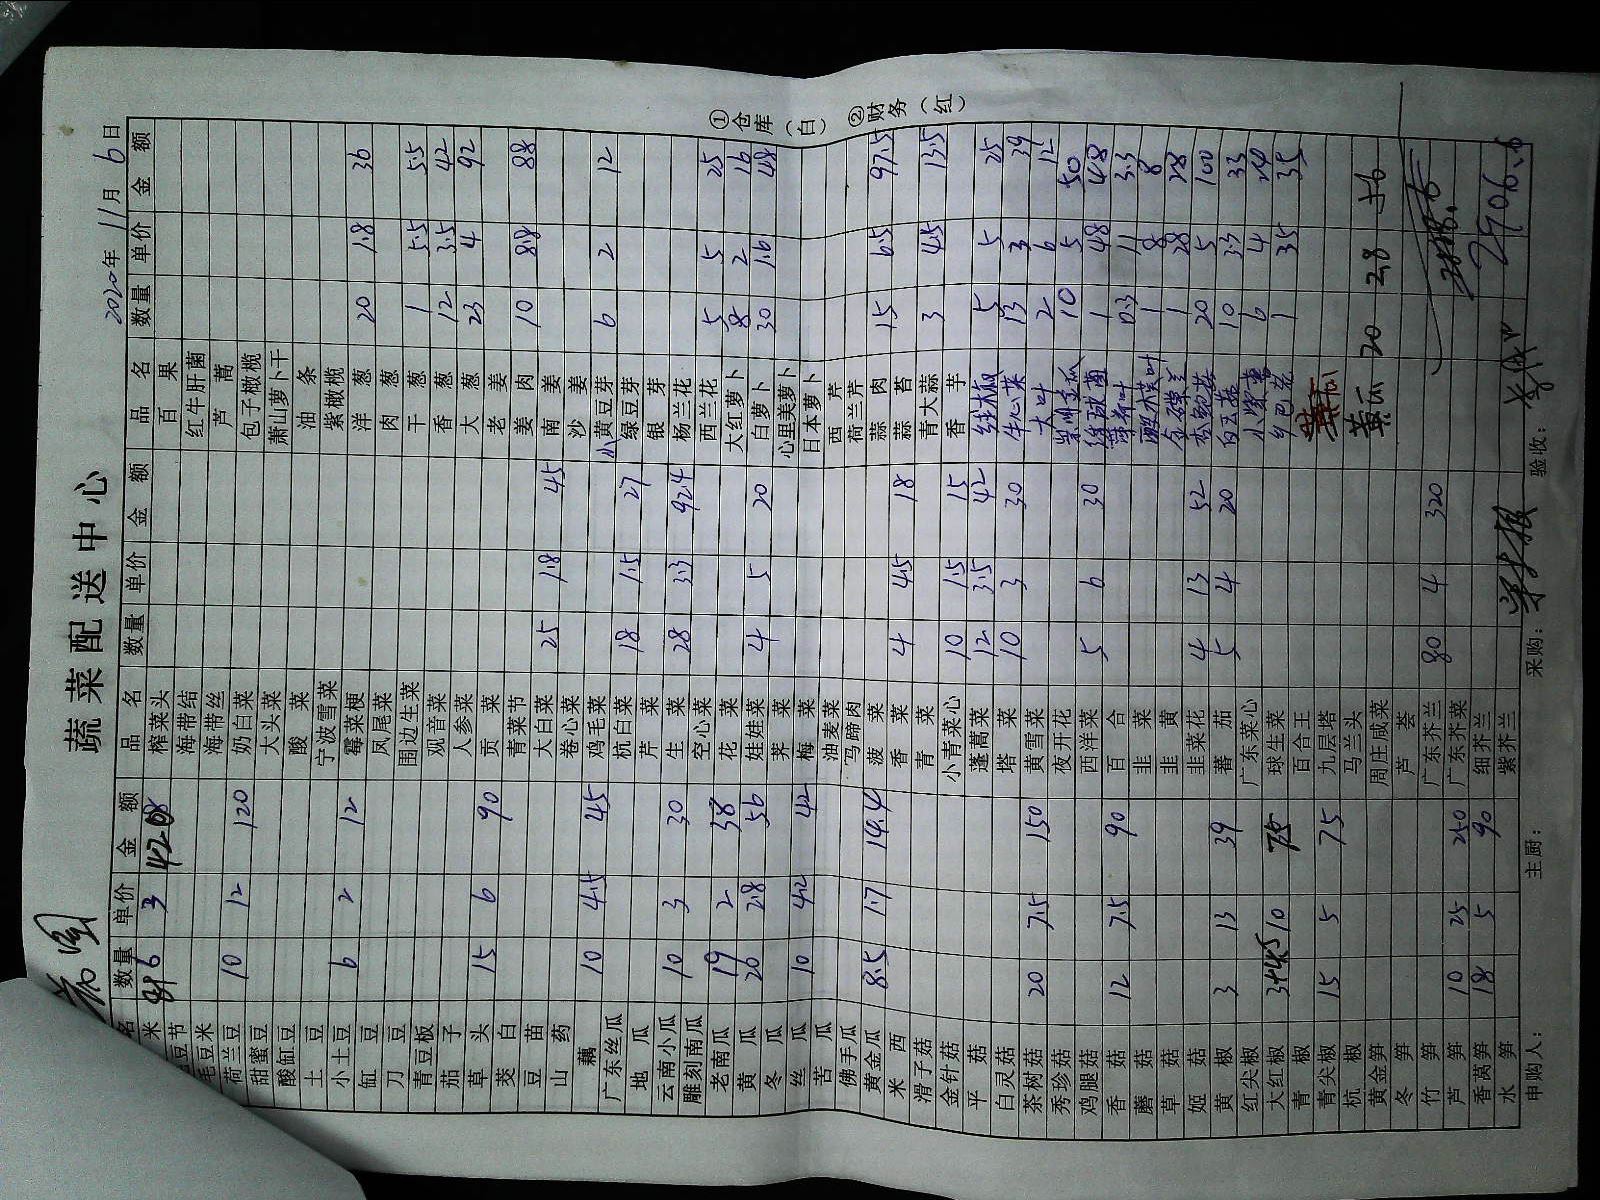 蔬菜配送中心
2020年 11月 6日
名 数量 单价 金 额
米 6 3
豆节
毛豆米
荷兰豆 10 12 120
甜蜜豆
酸缸豆
土 豆
小土豆 6 2 12
缸 豆
刀 豆
青豆板
茄 子
草 头 15 6 90
茭 白
豆 苗
山 药
藕 10 4.5 45
广东丝瓜
地 瓜
云南小瓜 10 3 30
雕刻南瓜
老南瓜 19 2 38
黄 瓜 20 2.8 56
冬 瓜
丝 瓜 10 4.2 42
苦 瓜
佛手瓜
黄金瓜 8.5 1.7 14.4
米 西
滑子菇
金针菇
平 菇
白灵菇
茶树菇 20 7.5 150
秀珍菇
鸡腿菇
香 菇 12 7.5 90
蘑 菇
草 菇
姬 菇
黄 椒 3 13 39
红尖椒
大红椒 10 75
青 椒
青尖椒 15 5 75
杭 椒
黄金笋
冬 笋
竹 笋
芦 笋 10 25 250
香莴笋 18 5 90
水 笋
品 名 数量 单价 金 额
榨菜头
海带结
海带丝
奶白菜
大头菜
酸 菜
宁波雪菜
霉菜梗
凤尾菜
围边生菜
观音菜
人参菜
贡 菜
青菜节
大白菜 25 1.8 45
卷心菜
鸡毛菜
杭白菜 18 1.5 27
芹 菜
生 菜 28 3.3 92.4
空心菜
花 菜
娃娃菜 4 5 20
荠 菜
梅 菜
油麦菜
马蹄肉
菠 菜
香 菜 4 4.5 18
青 菜
小青菜心 10 1.5 15
蓬蒿菜 12 3.5 42
塔 菜 10 3 30
黄雪菜
夜开花
西洋菜 5 6 30
百 合
韭 菜
韭 黄
韭菜花 4 13 52
蕃 茄 5 4 20
广东菜心
球生菜
百合王
九层塔
马兰头
周庄咸菜
芦 荟
广东芥兰 80 4 320
广东芥菜
细芥兰
紫芥兰
品 名 数量 单价 金 额
百 果
红牛肝菌
芦 蒿
包子橄榄
萧山萝卜干
油 条
紫橄榄
洋 葱 20 1.8 36
肉 葱
干 葱 1 5.5 5.5
香 葱 12 3.5 42
大 葱 23 4 92
老 姜
姜 肉 10 8.8 88
南 姜
沙 姜
小黄豆芽 6 2 12
绿豆芽
银 芽
杨兰花
西兰花 5 5 25
大红萝卜 8 2 16
白萝卜 30 1.6 48
心里美萝卜
日本萝卜
西 芹
荷兰芹
蒜 肉 15 6.5 97.5
蒜 苔
青大蒜 3 4.5 13.5
香 芋
线椒 5 5 25
牛心菜 13 3 39
大叶 2 6 12
10 5 50
1 48 48
薄荷叶 0.3 11 3.3
1 8 8
1 28 28
杏鲍菇 20 5 100
白玉菇 10 3.3 33
小紫薯 6 4 24
1 35 35
黄瓜 20 2.8 56
2906.6
①仓库（白） ②财务（红）
申购人： 主厨： 采购： 验收：